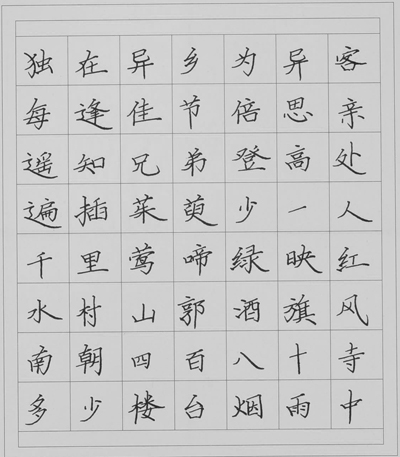 独在异乡为异客
每逢佳节倍思亲
遥知兄弟登高处
遍插茱萸少一人
千里莺啼绿映红
水村山郭酒旗风
南朝四百八十寺
多少楼台烟雨中